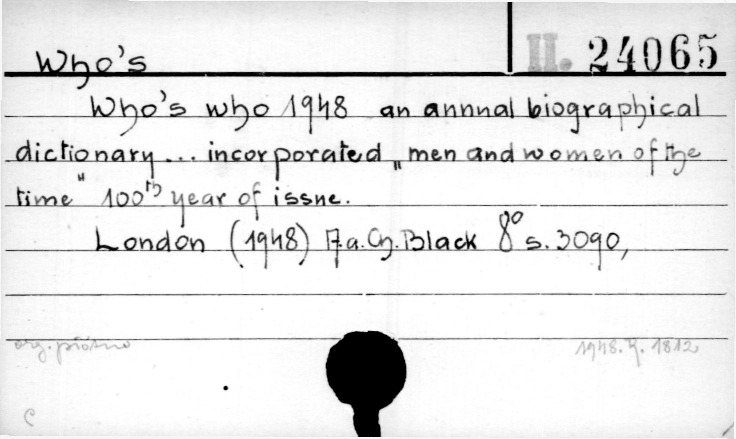 Who's
II. 24065
Who's who 1948 an annnal biographical
dictionary ... incorporated „men and women of the
time" 100th year of issne.
London (1948) A.a.Ch.Black 8° s. 3090,
org. płótno
1948. K. 1812
C